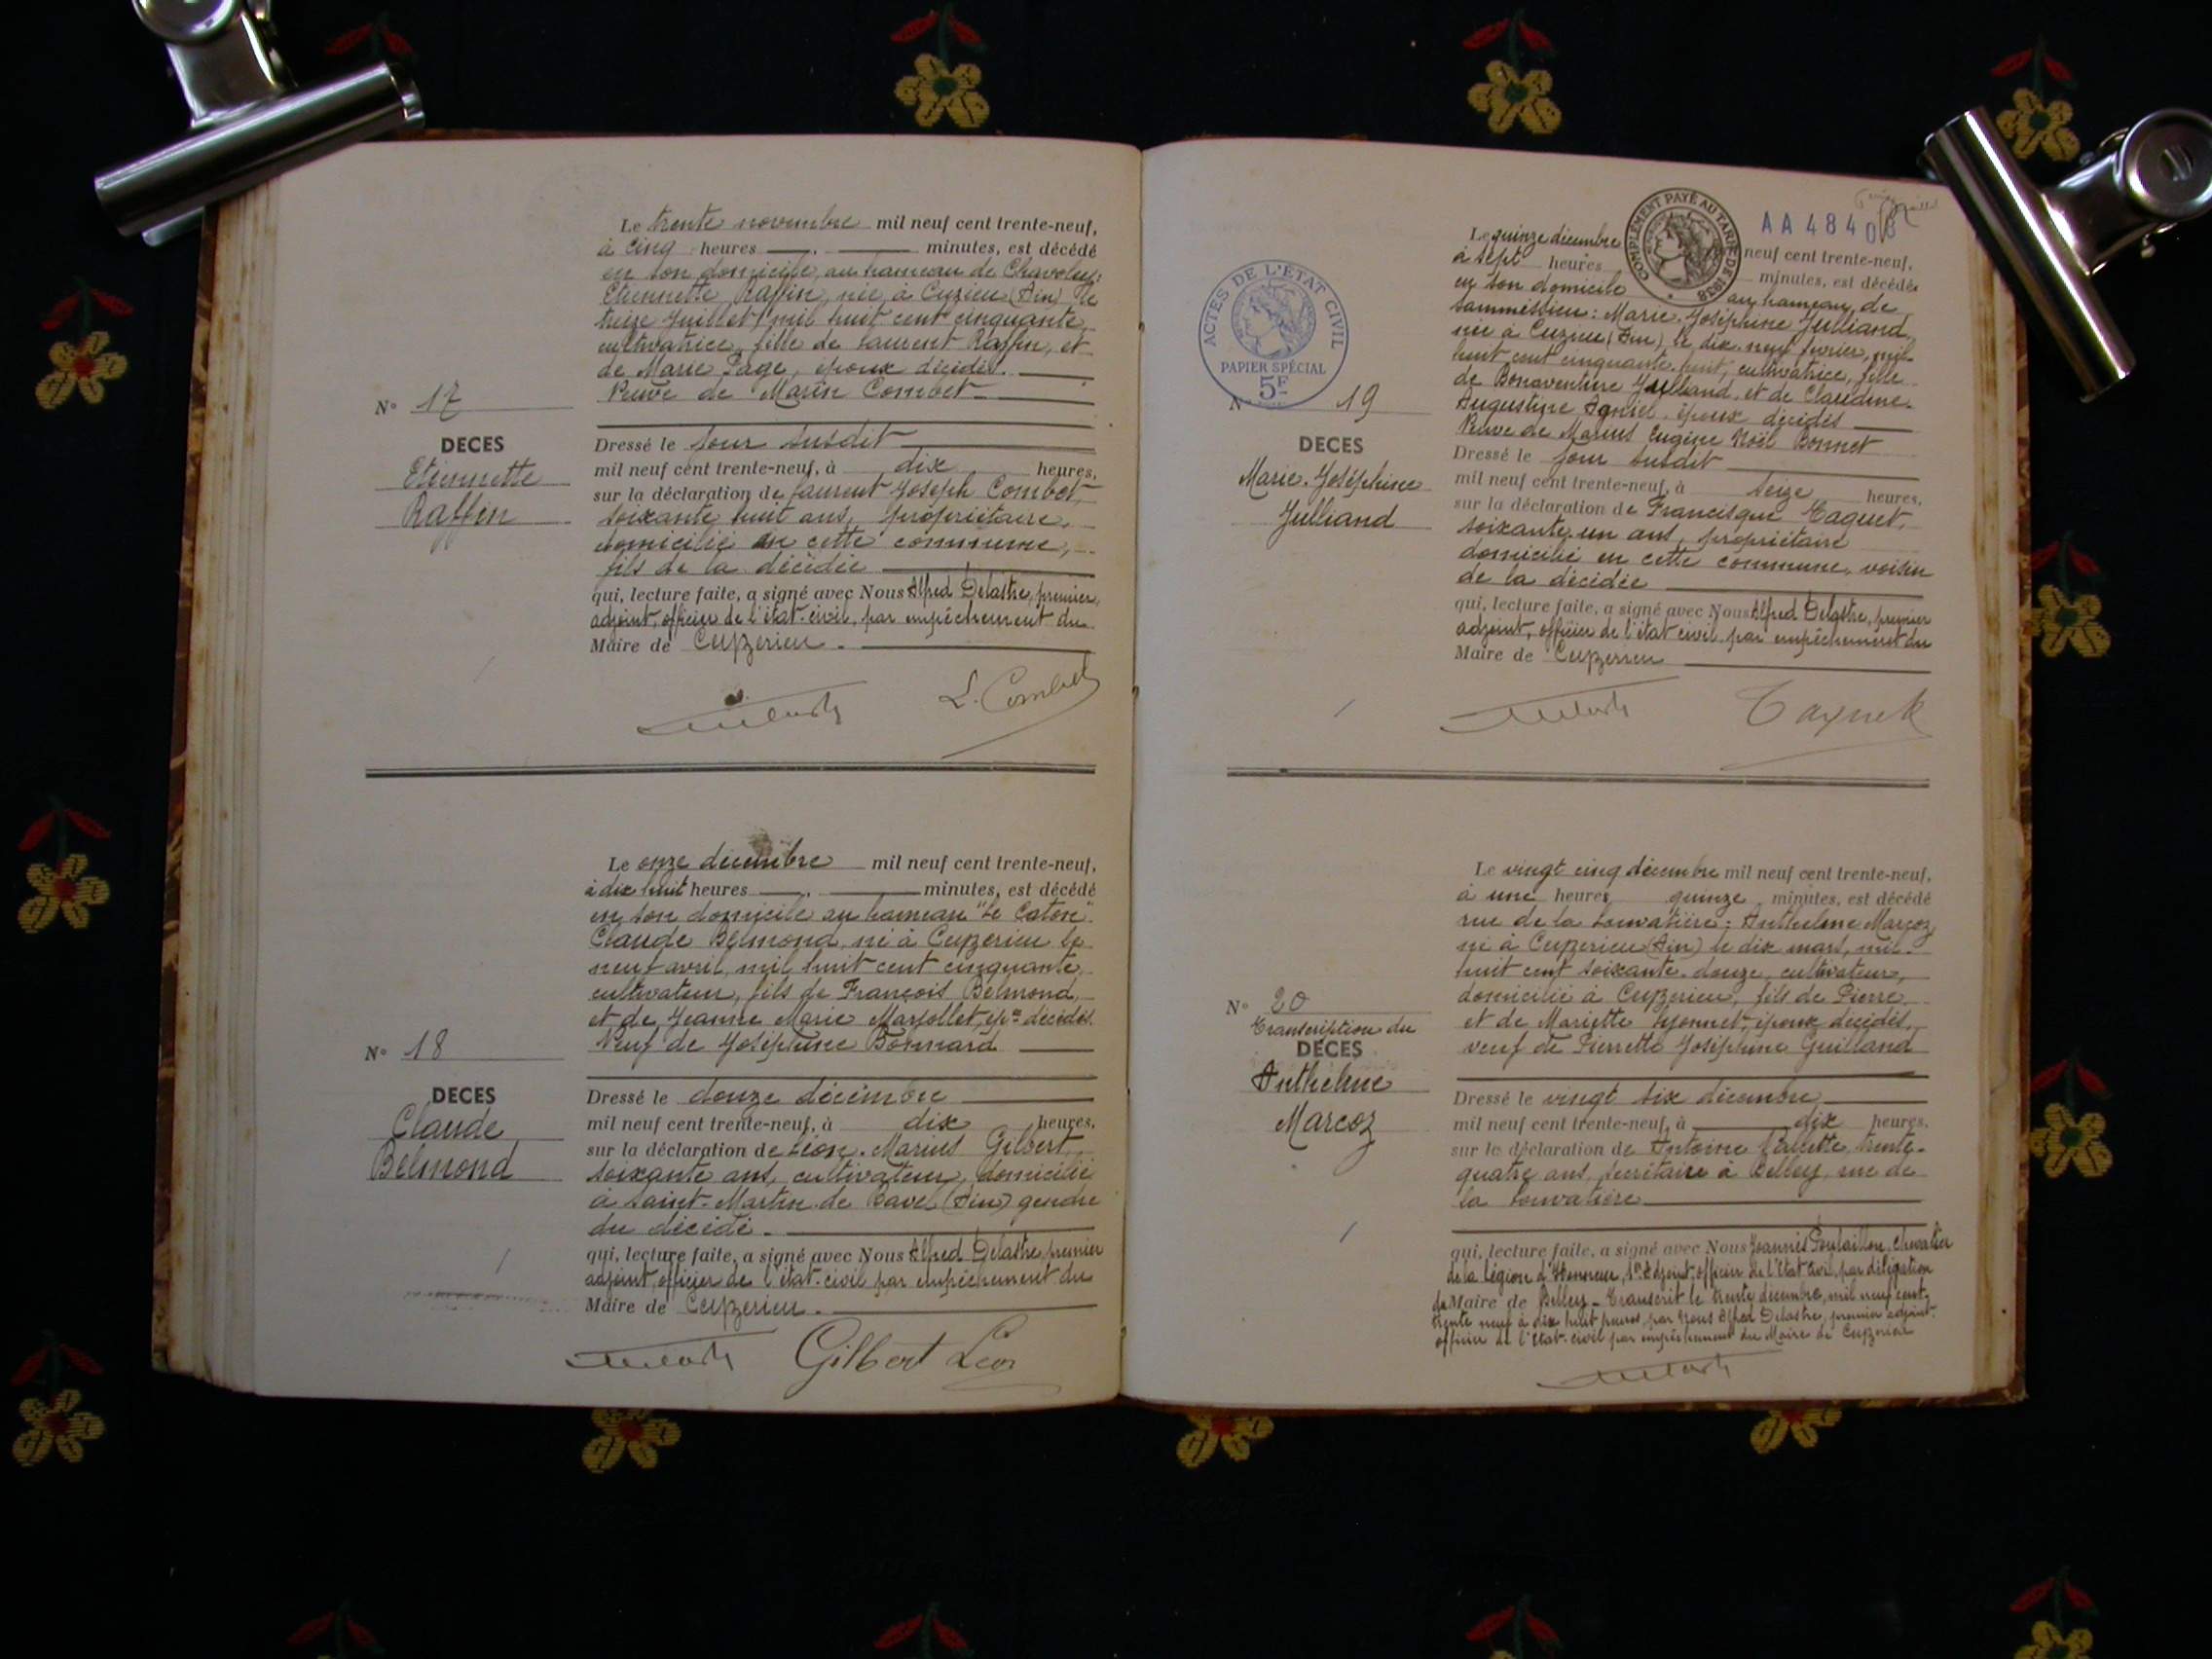 Le trente novembre mil neuf cent trente-neuf,
à cinq heures minutes, est décédé
en son domicile, au hameau de Chavoley:
Etiennette Raffin, née à Cuzieu (Ain) le
treize juillet mil huit cent cinquante
cultivatrice, fille de Laurent Raffin, et
de Marie Page, époux décédés.
Veuve de Marin Combet
N° 17
DECES
Etiennette
Raffin
Dressé le jour susdit
mil neuf cent trente-neuf, à dix heures,
sur la déclaration de Laurent Joseph Combet,
soixante huit ans, propriétaire,
domicilié en cette commune,
fils de la décédée
qui, lecture faite, a signé avec Nous Alfred Delastre, premier
adjoint, officier de l'état-civil, par empêchement du
Maire de Ceyzerieu.
L. Combet
Le onze décembre mil neuf cent trente-neuf,
à dix huit heures minutes, est décédé
en son domicile au hameau "Le Caton"
Claude Belmond, né à Ceyzerieu le
neuf avril mil huit cent cinquante,
cultivateur, fils de François Belmond,
et de Jeanne Marie Marjollet, epx décédés.
Veuf de Joséphine Bonnard
N° 18
DECES
Claude
Belmond
Dressé le douze décembre
mil neuf cent trente-neuf, à dix heures,
sur la déclaration de Léon-Marius Gilbert,
soixante ans, cultivateur, domicilié
à Saint-Martin de Bavel (Ain) gendre
du décédé.
qui, lecture faite, a signé avec Nous Alfred Delastre, premier
adjoint, officier de l'état-civil par empêchement du
Maire de Ceyzerieu.
Gilbert Leon
COMPLÉMENT PAYÉ AU TARIF DE 1938
AA 4840
Le quinze décembre neuf cent trente-neuf,
à sept heures minutes, est décédée
en son domicile au hameau de
Sammessieu: Marie-Joséphine Julliand,
née à Cuzieu (Ain) le dix-neuf février, mil
huit cent cinquante-huit, cultivatrice, fille
de Bonaventure Julliand, et de Claudine-
Augustine Agniel, époux décédés
Veuve de Marius Eugène Noël Bonnet
ACTES DE L'ÉTAT CIVIL
PAPIER SPÉCIAL
5F
N° 19
DECES
Marie-Joséphine
Julliand
Dressé le jour susdit
mil neuf cent trente-neuf, à seize heures,
sur la déclaration de Francisque Taquet,
soixante-un ans, propriétaire
domicilié en cette commune, voisin
de la décédée
qui, lecture faite, a signé avec Nous Alfred Delastre, premier
adjoint, officier de l'état civil par empêchement du
Maire de Ceyzerieu
Le vingt cinq décembre mil neuf cent trente-neuf,
à une heures quinze minutes, est décédé
rue de la Louvatière: Anthelme Marcoz,
né à Ceyzerieu (Ain) le dix mars, mil
huit cent soixante-douze, cultivateur,
domicilié à Ceyzerieu, fils de Pierre
et de Mariette époux décédés.
veuf de Pierrette Joséphine Guilland
N° 20
Transcription du
DECES
Anthelme
Marcoz
Dressé le vingt six décembre
mil neuf cent trente-neuf, à dix heures,
sur la déclaration de Antoine trente-
quatre ans, secrétaire à Belley, rue de
la Louvatière
qui, lecture faite, a signé avec Nous Joannès Chevalier
de la Légion d'Honneur, 1er Adjoint, officier de l'Etat Civil, par délégation
du Maire de Belley - Transcrit le trente décembre, mil neuf cent
trente neuf à dix huit heures, par Nous Alfred Delastre, premier adjoint
officier de l'état-civil par empêchement du Maire de Ceyzerieu